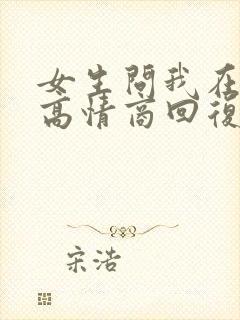 女生問我在
高情商回復
宋浩